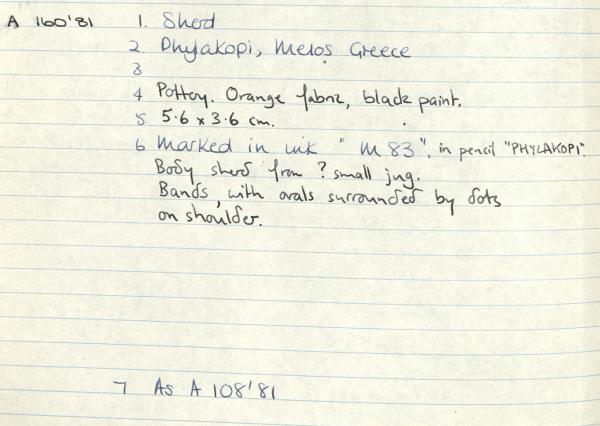 A 160'81 1. Sherd
2. Phylakopi, Melos Greece
3
4 Pottery. Orange fabric, black paint.
5 5.6 x 3.6 cm.
6 Marked in ink "M 83", in pencil "PHYLAKOPI".
Body sherd from ? small jug.
Bands, with ovals surrounded by dots
on shoulder.
7 As A 108'81